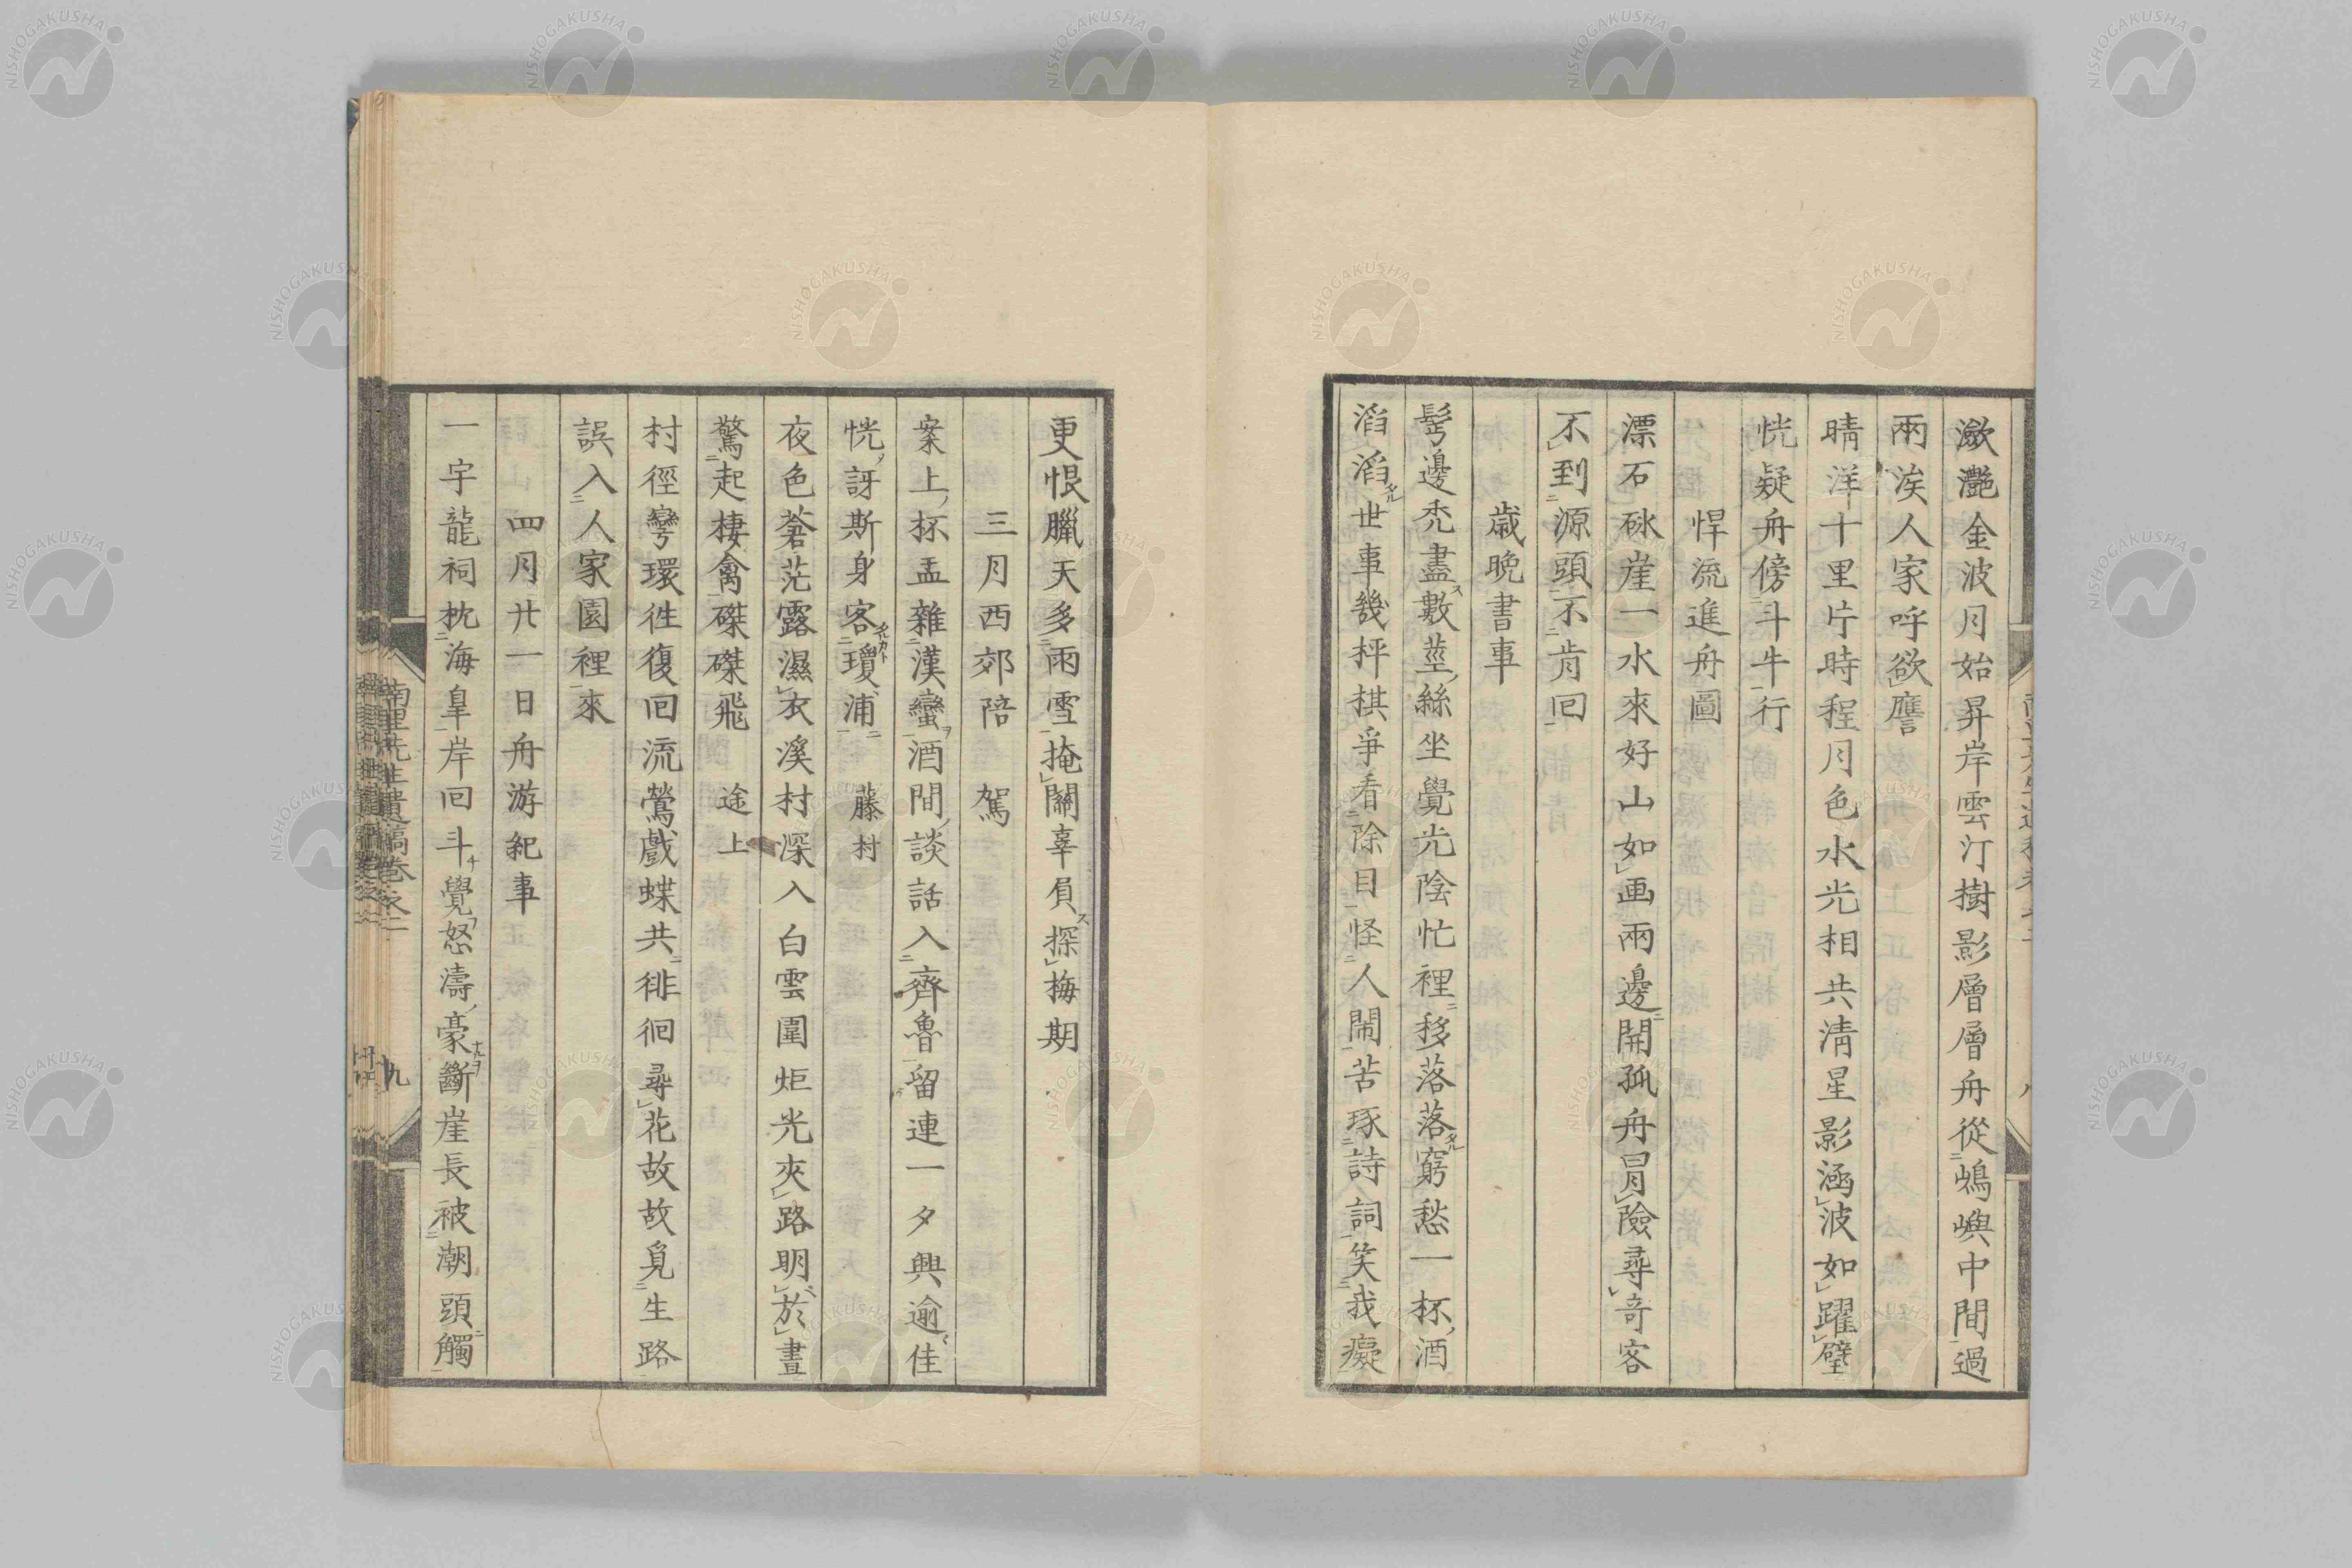 瀲灧金波月始昇岸雲汀樹影層層舟從鳴嶼中間過
兩涘人家呼欲譍
晴洋十里片時程月色水光相共清星影涵波如躍璧
恍疑舟傍斗牛行
悍流進舟圖
漂石砅崖一水來好山如画兩邊開孤舟冐險尋奇客
不到源頭不肯回
歳晚書事
髩邊禿盡數莖絲坐覺光陰忙裡移落落窮愁一杯酒
滔滔世事幾枰棋爭看除目怪人鬧苦琢詩詞笑我癡
更恨臘天多雨雪掩關辜負探梅期
三月西郊陪　駕
案上杯盂雜漢蠻酒間談話入齊魯留連一夕興逾佳
恍訝斯身客瓊浦　藤村
夜色蒼茫露濕衣溪村深入白雲圍炬光夾路明於晝
驚起棲禽磔磔飛　途上
村徑彎環徃復回流鶯戲蝶共徘徊尋花故故覓生路
誤入人家園裡來
四月廿一日舟游紀事
一宇龍祠枕海皐岸回斗覺怒濤豪斷崖長被潮頭觸
南里先生遺稿卷之二
九